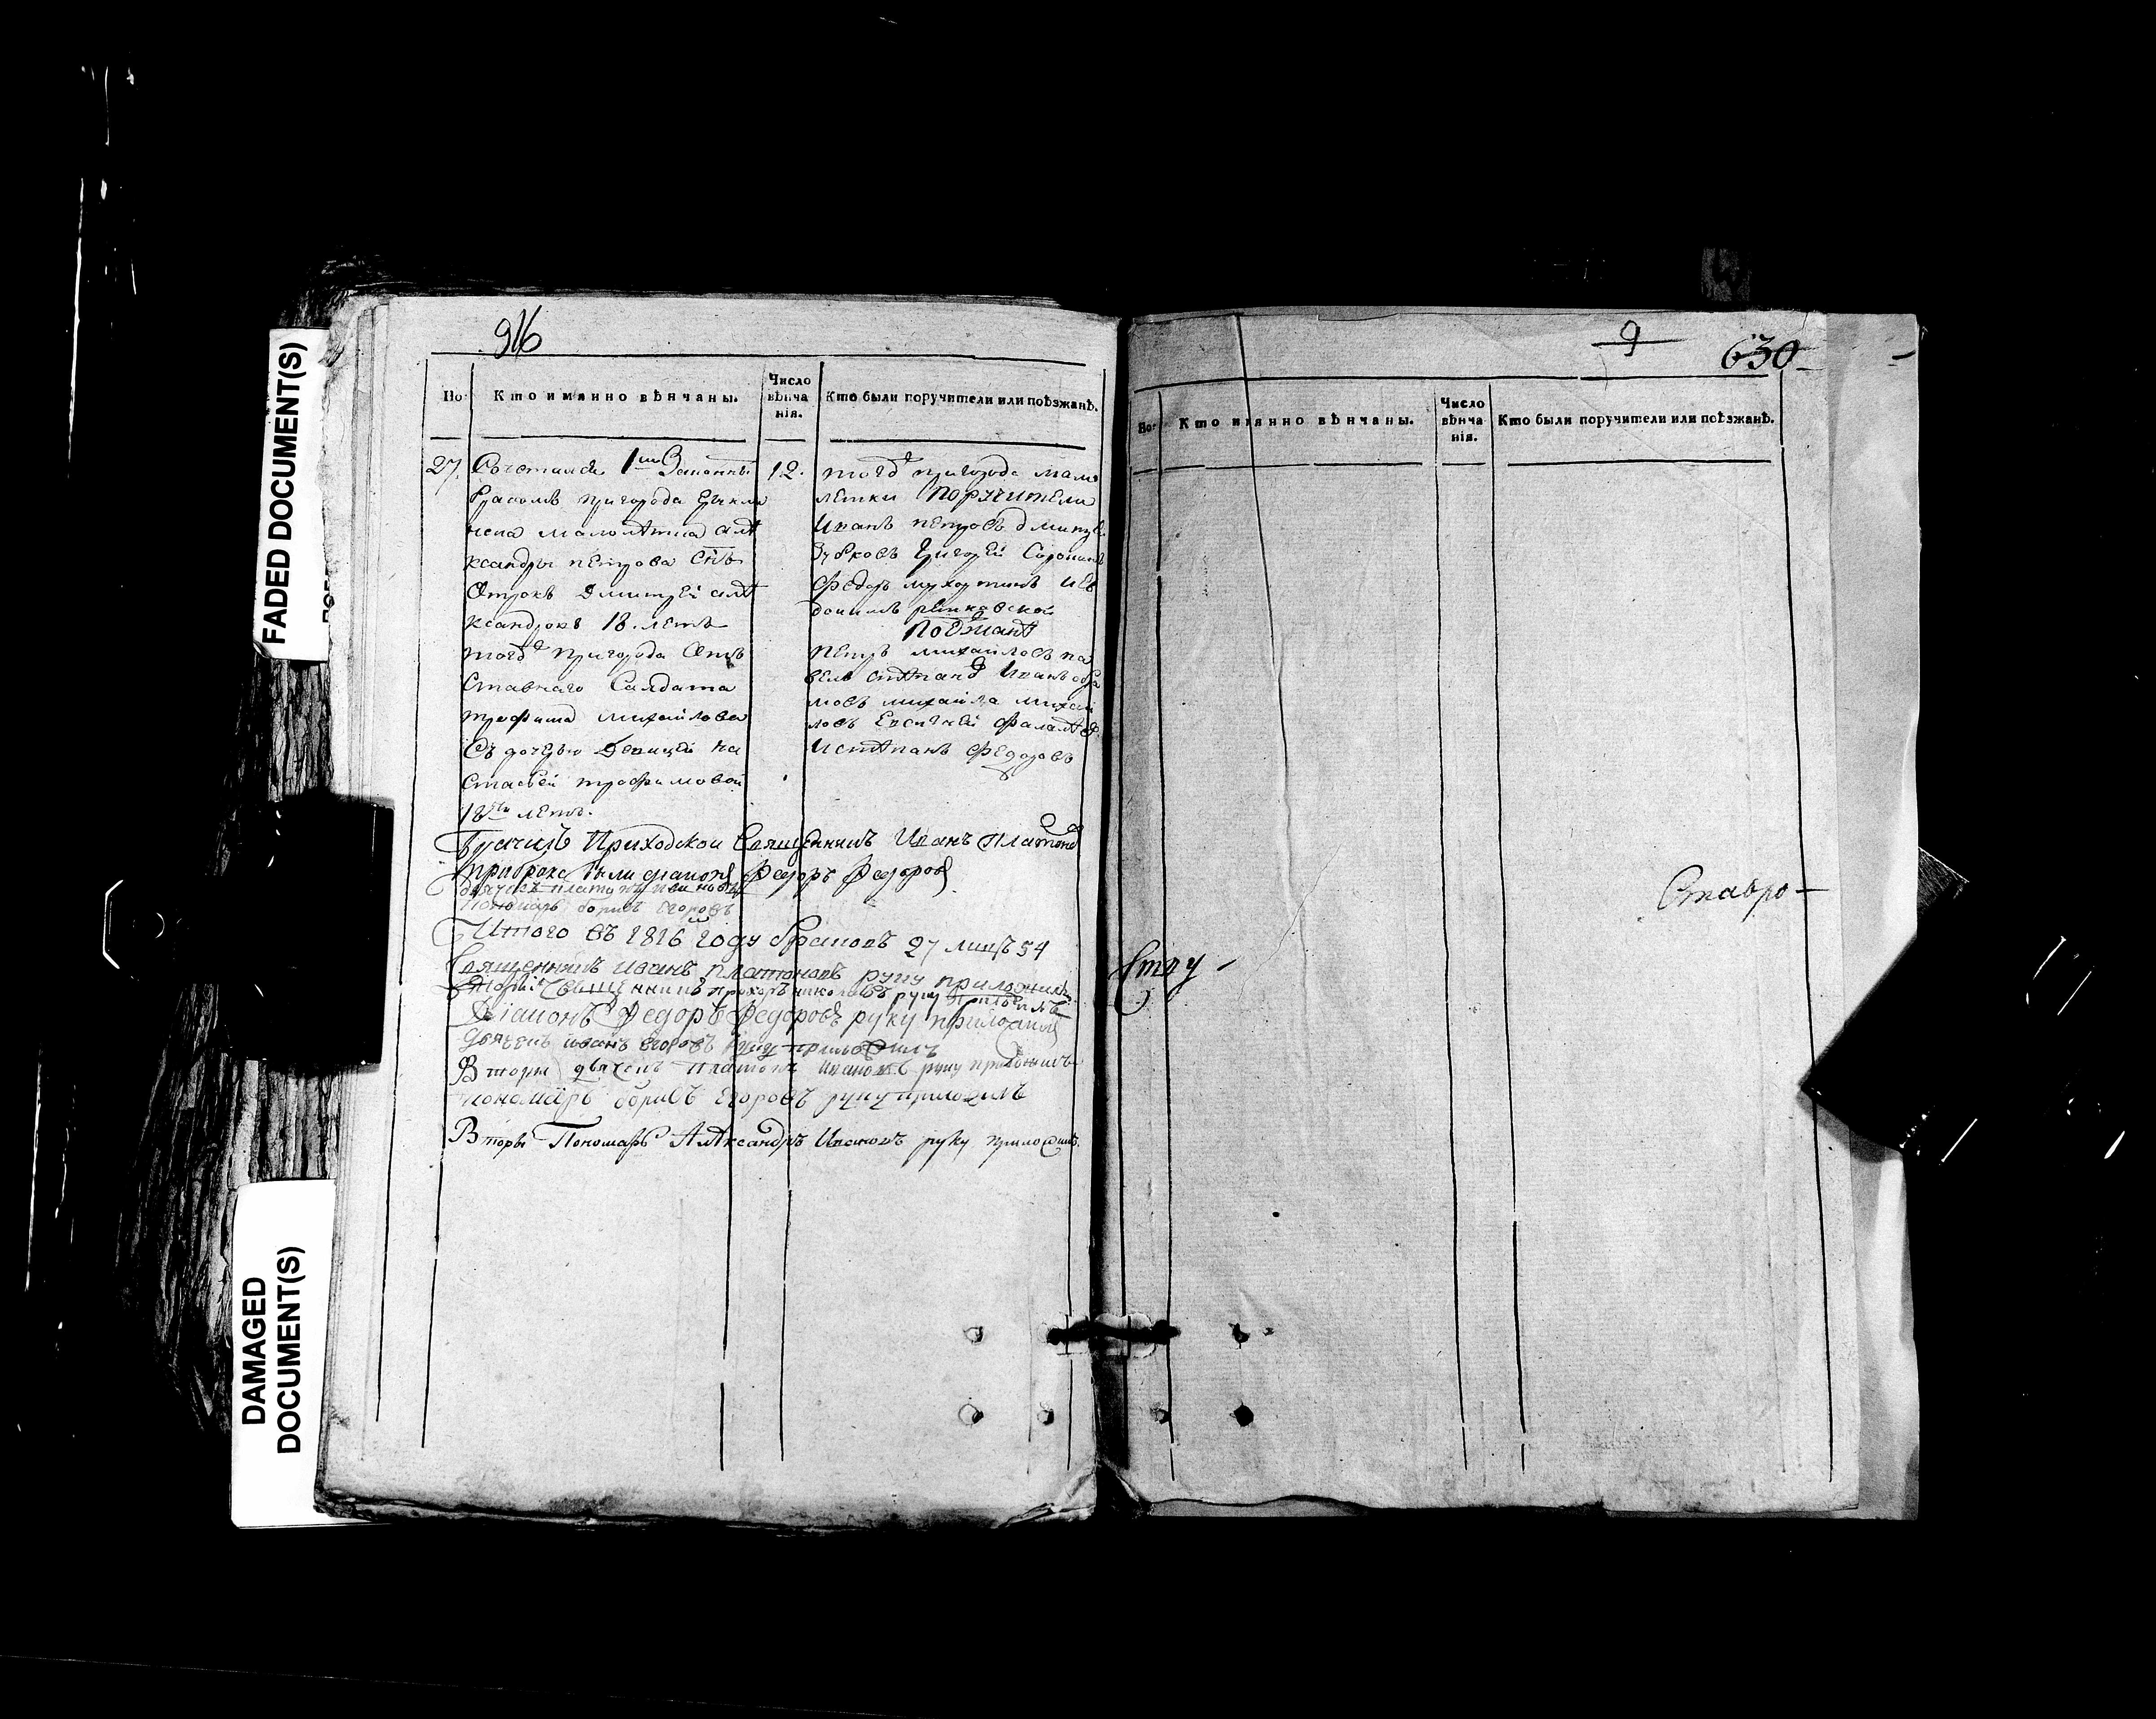 FADED DOCUMENT(S)
DAMAGED
DOCUMENT(S)
916
Но.
Кто имянно вѣнчаны.
Число
вѣнча
нія.
Кто были поручители или поѣзжанѣ.
27.
Сочетался 1мъ Законнъ
бракомъ пригорода
малолѣтка алѣ
ксандры петрова Снъ
Отрокъ Дмитрей алѣ
ксандровъ 18. летъ
тогожъ пригорода Отъ
Ставнаго Салдата
трофима михайлова
Съ дочерью Девицей На
Стасьей трофимовой
18ти летъ.
12.
тогожъ пригорода мало
летки Поручители
Иванъ петровъ дмитре
Зубковъ Григорей Сорокинъ
Федоръ мухортинъ и Ев
докимъ
Поѣзжанѣ
Петръ михайловъ па
велъ Иванъ
мовъ михайла михай
ловъ Евсигней Фалалѣев
И стѣпанъ Федоровъ
Венчилъ Приходской Священникъ Иванъ Платонов
при браке были диаконъ Федоръ Федоровъ
дьячекъ платонъ ивановъ
Пономарь борисъ Егоровъ
Итого въ 1816 году браковъ 27 лицъ 54
Священникъ иванъ платоновъ руку приложилъ
Вторый Священникъ прохоръ николаевъ руку приложилъ
Діаконъ Федоръ Федоровъ руку приложилъ
Дьячекъ иванъ Егоровъ руку приложилъ
Вторы дьячекъ Платонъ ивановъ руку приложилъ
пономарь борисъ Егоровъ руку приложилъ
Вторы Пономарь Алѣксандръ Ивановъ руку приложилъ
9
630
Но.
Кто имянно вѣнчаны.
Число
вѣнча
нія.
Кто были поручители или поѣзжанѣ.
Ставро-